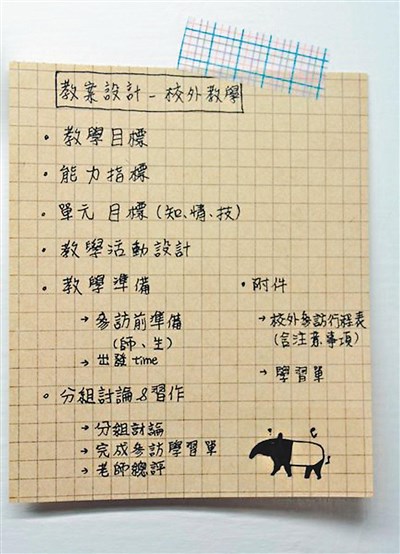 教案設計－校外教學
• 教學目標
• 能力指標
• 單元目標(知、情、技)
• 教學活動設計
• 教學準備
→ 參訪前準備
(師、生)
→ 出發time
• 分組討論&習作
→ 分組討論
→ 完成參訪學習單
→ 老師總評
• 附件
→ 校外參訪行程表
(含注意事項)
→ 學習單